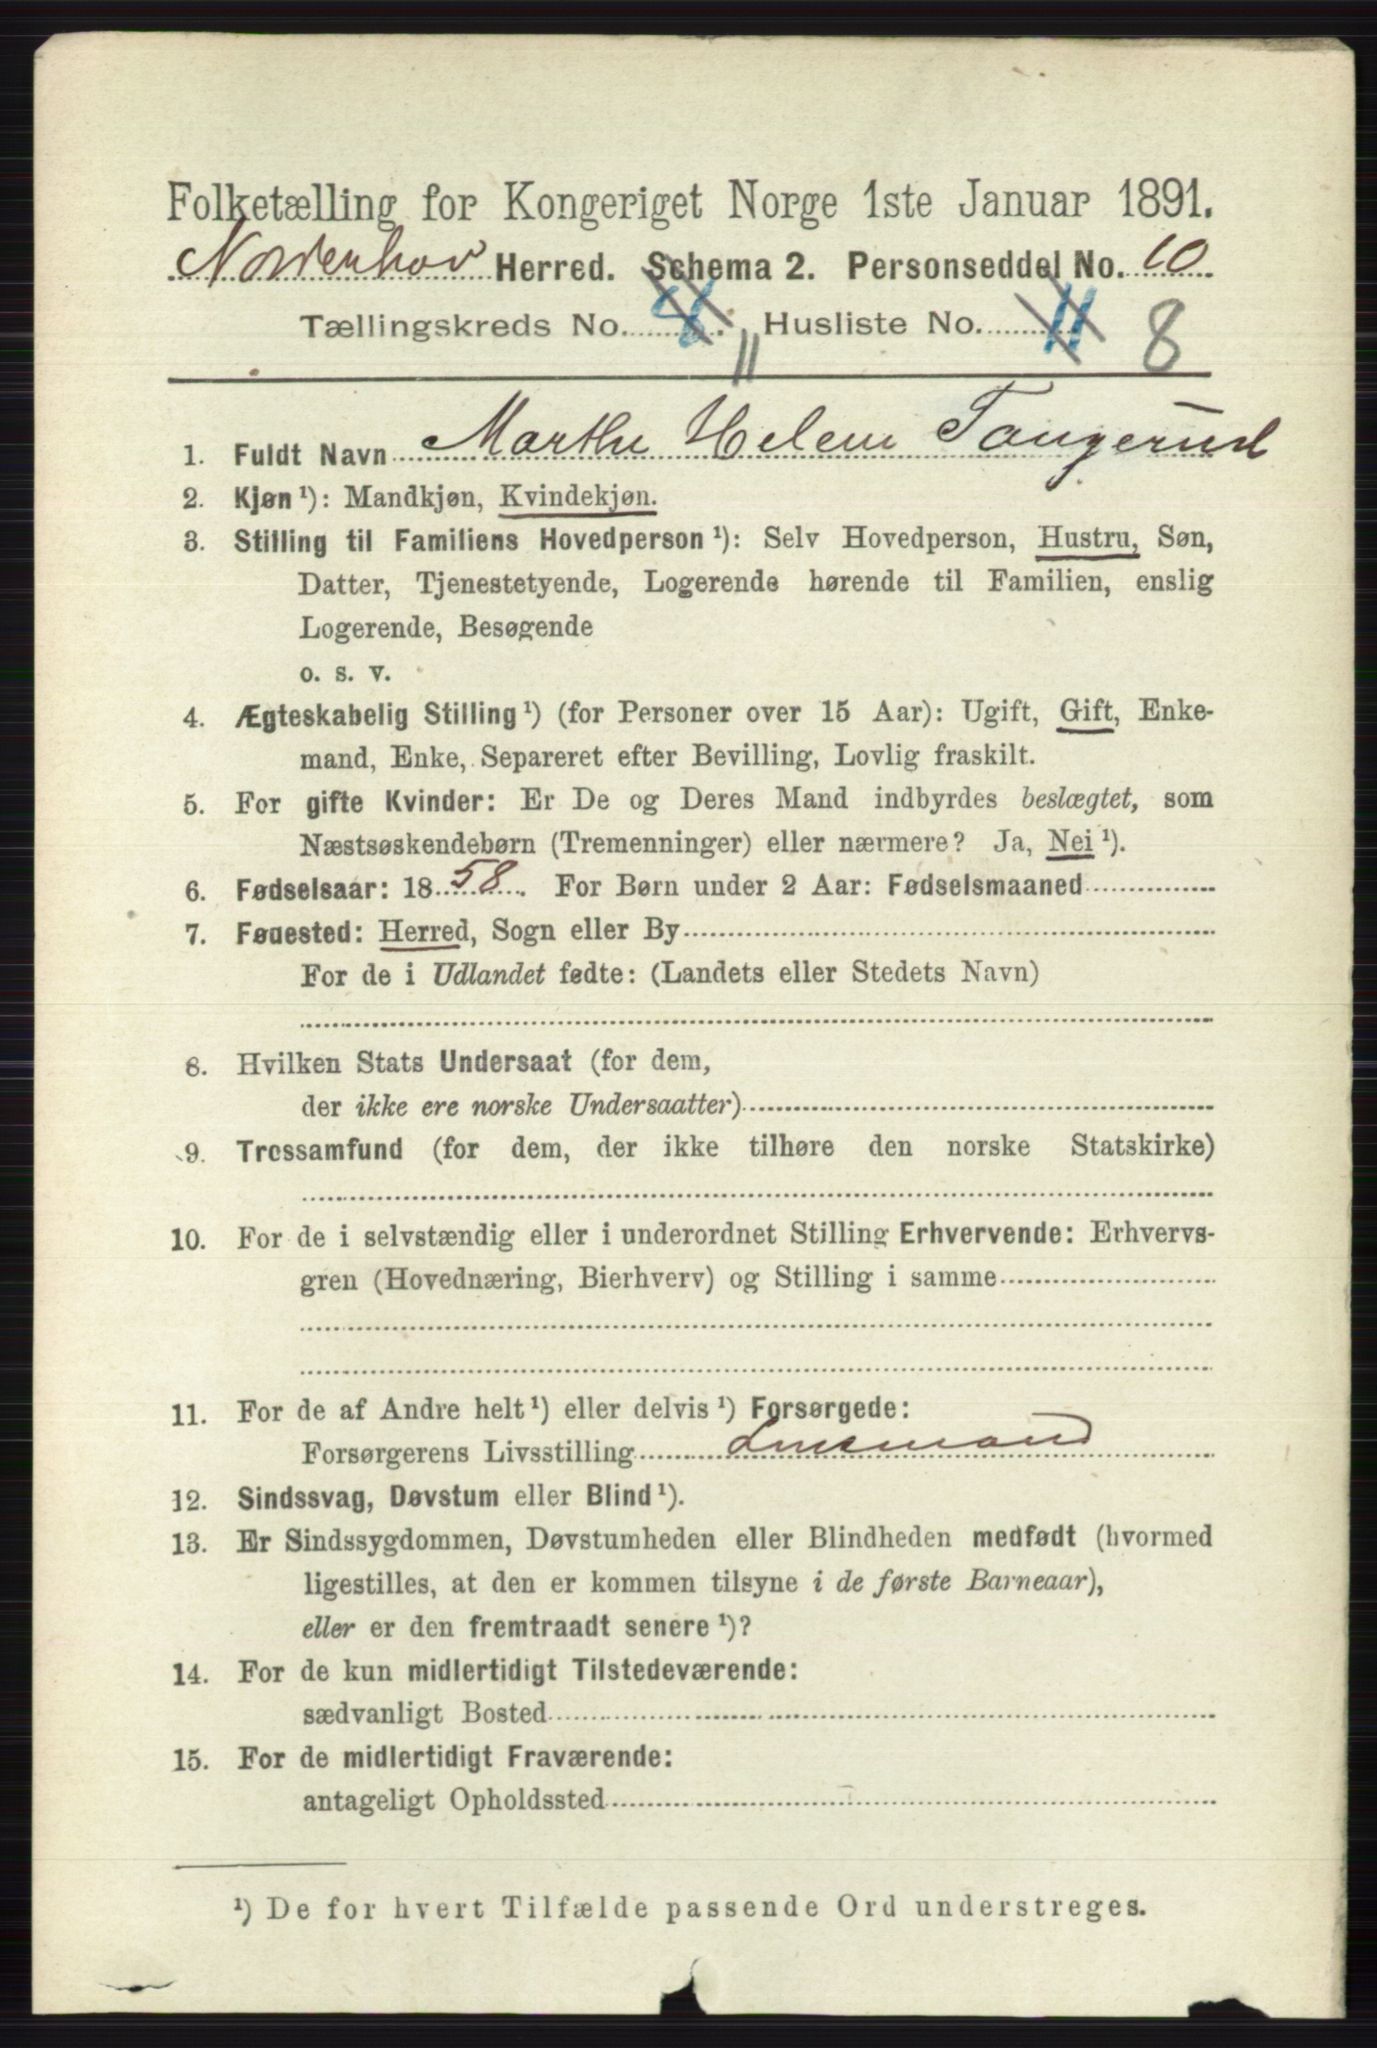 Folketælling for Kongeriget Norge 1ste Januar 1891.
Norderhov Herred. Schema 2. Personseddel No. 10
Tællingskreds No. 8 11 Husliste No. 11 8
1. Fuldt Navn Marthe Helene Tangerud
2. Kjøn ¹): Mandkjøn, Kvindekjøn.
3. Stilling til Familiens Hovedperson ¹): Selv Hovedperson, Hustru, Søn,
Datter, Tjenestetyende, Logerende hørende til Familien, enslig
Logerende, Besøgende
o. s. v.
4. Ægteskabelig Stilling ¹) (for Personer over 15 Aar): Ugift, Gift, Enke-
mand, Enke, Separeret efter Bevilling, Lovlig fraskilt.
5. For gifte Kvinder: Er De og Deres Mand indbyrdes beslægtet, som
Næstsøskendebørn (Tremenninger) eller nærmere? Ja, Nei ¹).
6. Fødselsaar: 1858. For Børn under 2 Aar: Fødselsmaaned
7. Fødested: Herred, Sogn eller By
For de i Udlandet fødte: (Landets eller Stedets Navn)
8. Hvilken Stats Undersaat (for dem,
der ikke ere norske Undersaatter)
9. Trossamfund (for dem, der ikke tilhøre den norske Statskirke)
10. For de i selvstændig eller i underordnet Stilling Erhvervende: Erhvervs-
gren (Hovednæring, Bierhverv) og Stilling i samme
11. For de af Andre helt ¹) eller delvis ¹) Forsørgede:
Forsørgerens Livsstilling
12. Sindssvag, Døvstum eller Blind ¹).
13. Er Sindssygdommen, Døvstumheden eller Blindheden medfødt (hvormed
ligestilles, at den er kommen tilsyne i de første Barneaar),
eller er den fremtraadt senere ¹)?
14. For de kun midlertidigt Tilstedeværende:
sædvanligt Bosted
15. For de midlertidigt Fraværende:
antageligt Opholdssted
¹) De for hvert Tilfælde passende Ord understreges.